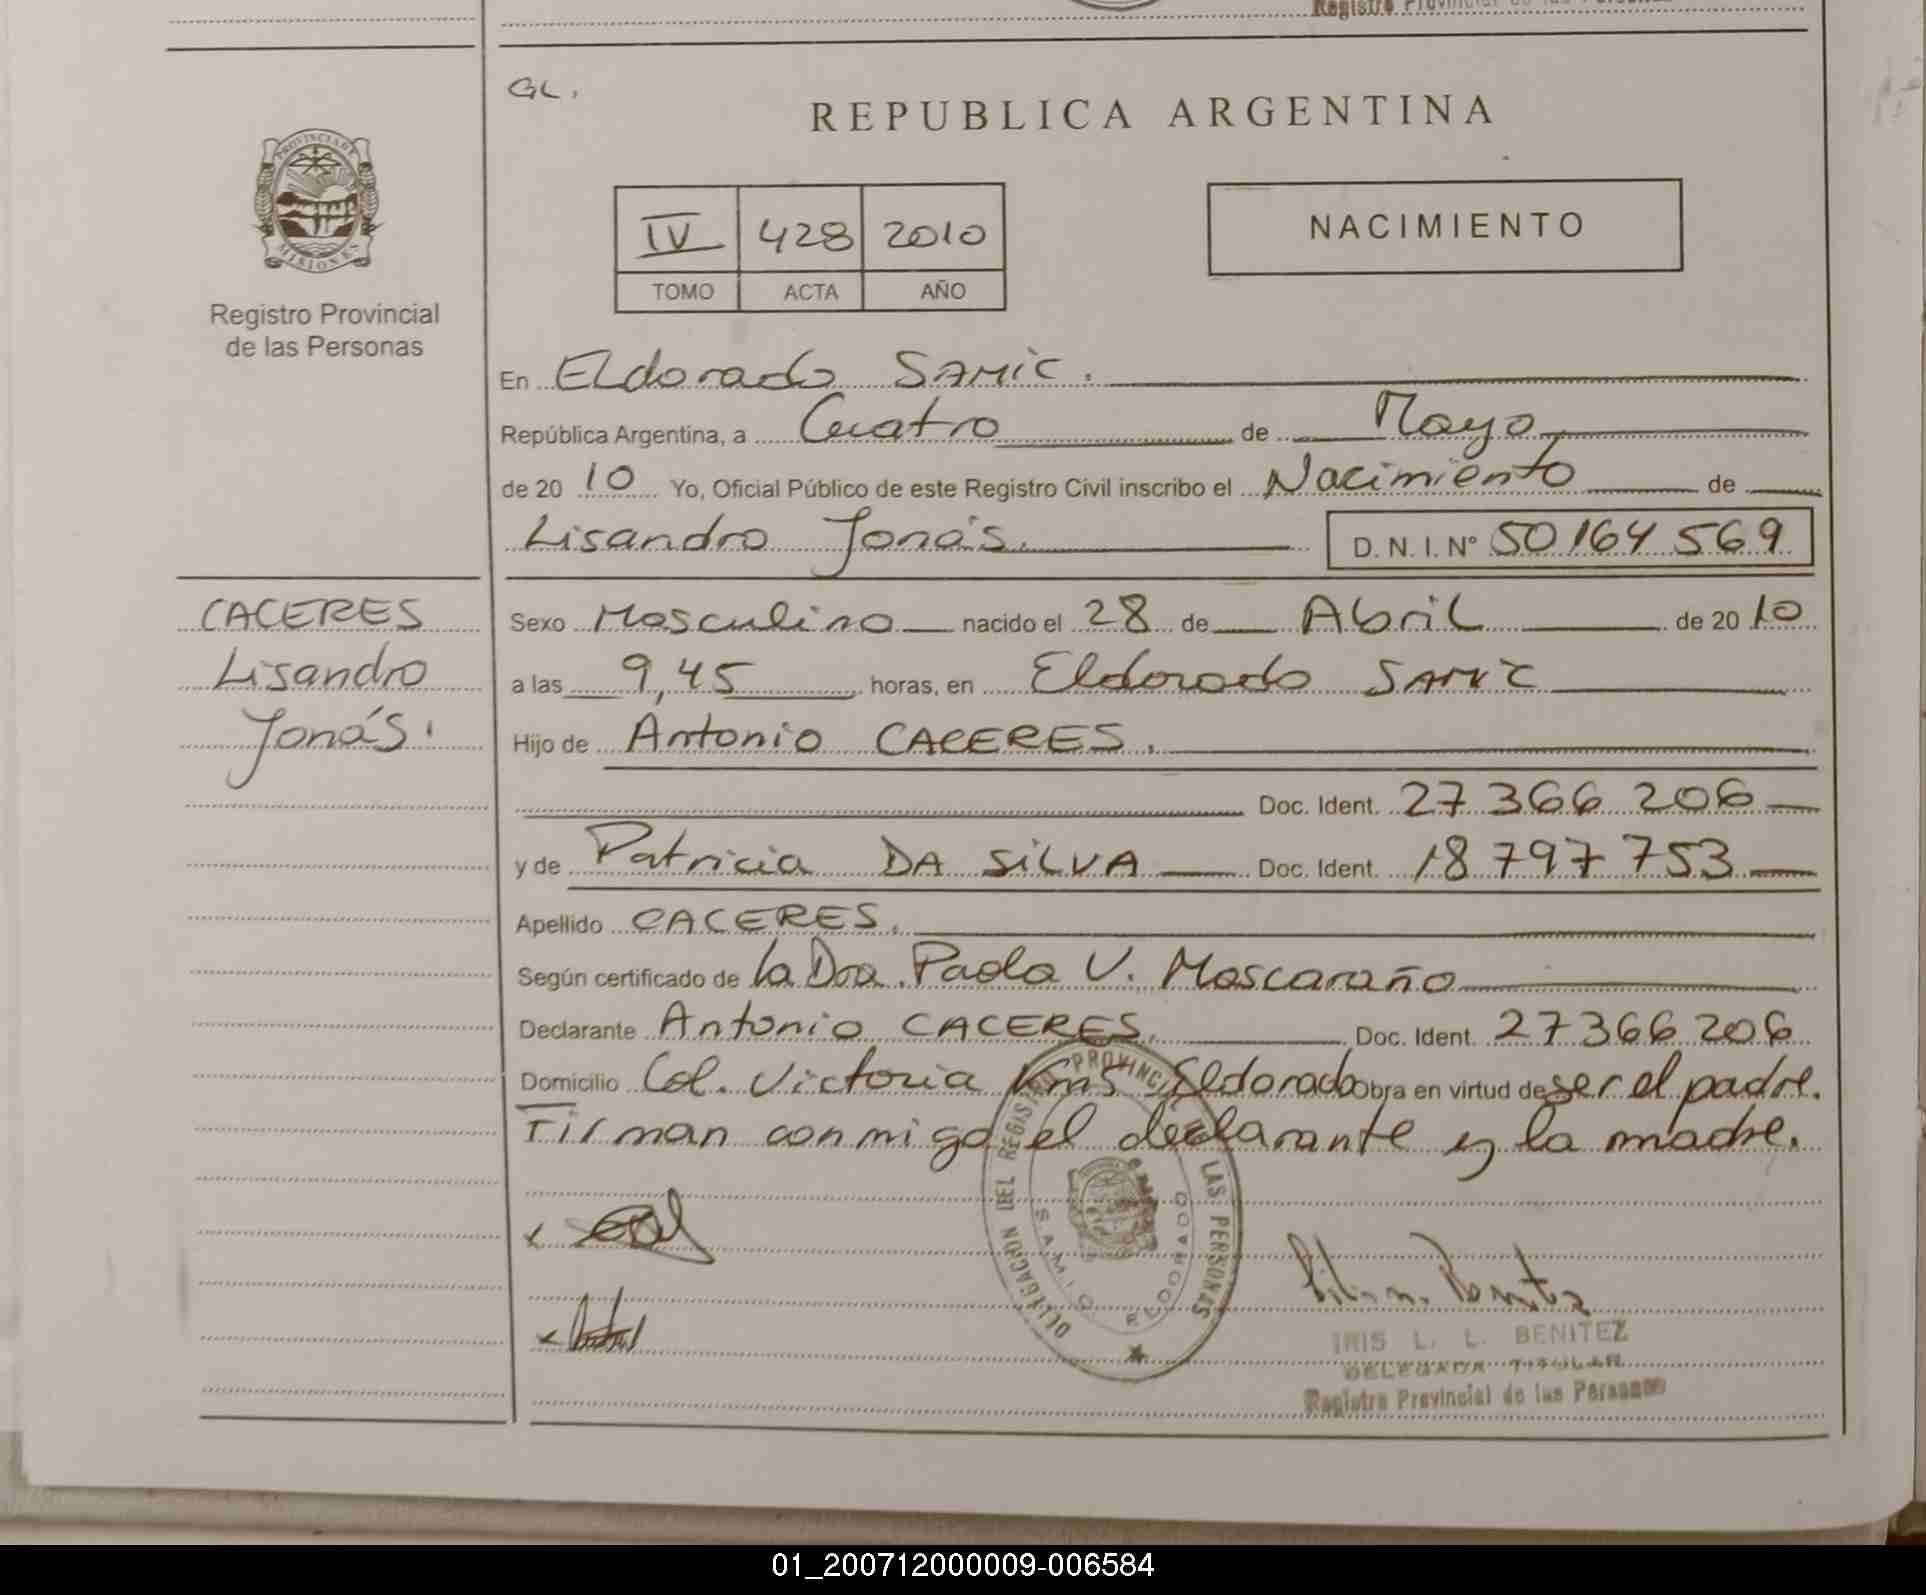 Registro Provincial de las Personas
GL.
REPUBLICA ARGENTINA
PROVINCIA DE
MISIONES
Registro Provincial
de las Personas
IV 428 2010
TOMO ACTA AÑO
NACIMIENTO
En Eldorado SAMIC.
República Argentina, a Cuatro de Mayo
de 2010 Yo, Oficial Público de este Registro Civil inscribo el Nacimiento de
Lisandro Jonás. D. N. I. Nº 50 164 569
CACERES
Lisandro
Jonás.
Sexo Masculino nacido el 28 de Abril de 2010
a las 9,45 horas, en Eldorado SAMIC
Hijo de Antonio CACERES.
Doc. Ident. 27 366 206
y de Patricia DA SILVA Doc. Ident. 18 797 753
Apellido CACERES.
Según certificado de la Dra. Paola V. Mascaraño
Declarante Antonio CACERES. Doc. Ident. 27366206
Domicilio Col. Victoria Eldorado Obra en virtud de ser el padre.
Firman conmigo el declarante y la madre.
DELEGACION DEL REGISTRO PROVINCIAL LAS PERSONAS
S.A.M.I.C. ELDORADO
IRIS L. L. BENITEZ
DELEGADA TITULAR
Registro Provincial de las Personas
01_200712000009-006584